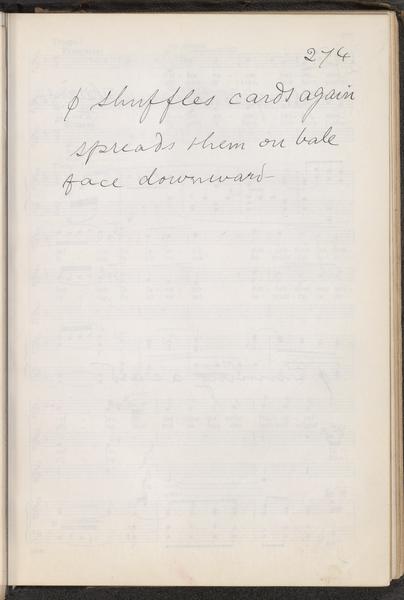 274
φ shuffles cards again
spreads them on bale
face downward